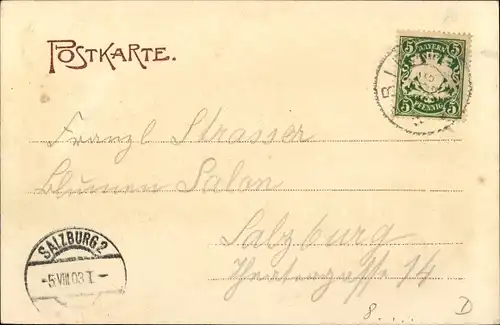 POSTKARTE.
5 BAYERN 5
5 PFENNIG 5
Franzl Strasser
Blumen Salon
Salzburg
14
SALZBURG 2
-5 VIII 03 I-
8 . . . .
D